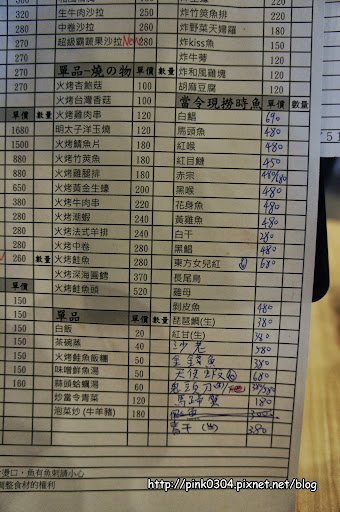 320 生牛肉沙拉
320 中卷沙拉
270 超級霸蔬果沙拉 New 280
270
270
270
炸竹筴魚排 180
炸野菜天婦羅 180
炸kiss魚 150
炸牛蒡 120
炸和風雞塊 120
胡麻豆腐 120
單品-燒の物 單價 數量
火烤杏鮑菇 100
火烤台灣香菇 100
火烤雞肉串 120
明太子洋玉燒 120
火烤鯖魚片 180
火烤竹筴魚 180
火烤雞腿排 180
火烤黃金生蠔 200
火烤牛肉串 220
火烤潮鯧 240
火烤法式羊排 240
火烤中卷 280
火烤鮭魚 280
火烤深海圓鱈 370
火烤鮭魚頭 520
單價 數量
1680
1680
150
880
880
650
360
260
數量
單價
150
150
150
150
150
160
單品 單價
白飯 20
茶碗蒸 40
火烤鮭魚飯糰 50
味噌鮮魚湯 50
蒜頭蛤蠣湯 60
炒當令青菜 120
泡菜炒 (牛羊豬) 180
當令現撈時魚 單價 數量
白鯧 690
馬頭魚 480
紅喉 480
紅目鰱 450
赤宗
黑喉 480
花身魚 480
黃雞魚 480
白干 280
黑鯧 480
東方女兒紅 680
長尾鳥
雞母
剝皮魚 480
琵琶鯛(生) 380
紅甘(生) 380
沙老 580
金錢魚 380
680
180
300
380
燙口，魚有魚刺請小心
調整食材的權利
http://pink0304.pixnet.net/blog